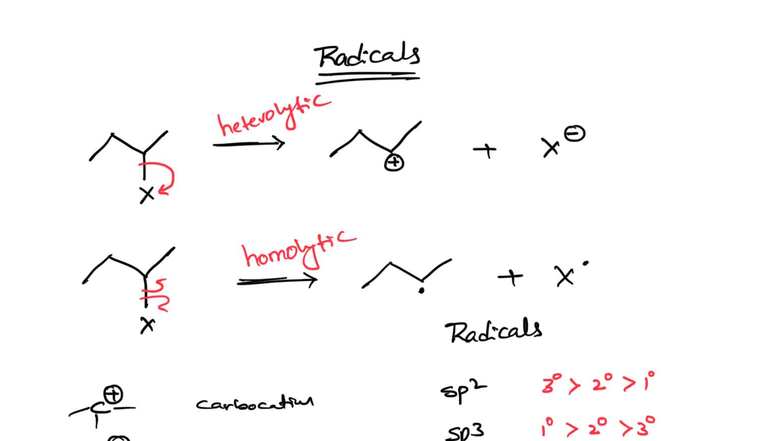 Radicals
heterolytic
+ X⊖
⊕
X
homolytic
+ X•
X
Radicals
C⊕ carbocation
sp2 3° > 2° > 1°
sp3 1° > 2° > 3°